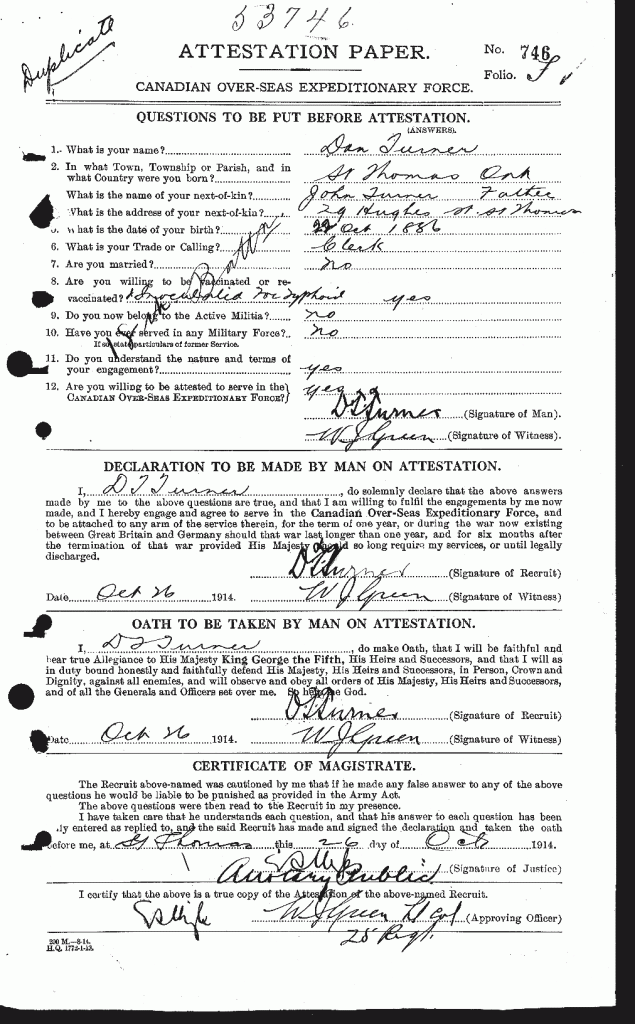 53746
Duplicate
ATTESTATION PAPER.
No. 746
Folio.
CANADIAN OVER-SEAS EXPEDITIONARY FORCE.
QUESTIONS TO BE PUT BEFORE ATTESTATION.
(ANSWERS).
1. What is your name? Dan Turner
2. In what Town, Township or Parish, and in
what Country were you born? St Thomas Ont
What is the name of your next-of-kin? John Turner Father
What is the address of your next-of-kin? 29 Hughes st St Thomas
5. What is the date of your birth? 22 Oct 1886
6. What is your Trade or Calling? Clerk
7. Are you married? no
8. Are you willing to be vaccinated or re-
vaccinated? & Inoculated for Typhoid yes
18th Battn
9. Do you now belong to the Active Militia? no
10. Have you ever served in any Military Force? no
If so, state particulars of former Service.
11. Do you understand the nature and terms of
your engagement? yes
12. Are you willing to be attested to serve in the
CANADIAN OVER-SEAS EXPEDITIONARY FORCE? yes
D T Turner (Signature of Man).
W J Green (Signature of Witness).
DECLARATION TO BE MADE BY MAN ON ATTESTATION.
I, D T Turner, do solemnly declare that the above answers
made by me to the above questions are true, and that I am willing to fulfil the engagements by me now
made, and I hereby engage and agree to serve in the Canadian Over-Seas Expeditionary Force, and
to be attached to any arm of the service therein, for the term of one year, or during the war now existing
between Great Britain and Germany should that war last longer than one year, and for six months after
the termination of that war provided His Majesty should so long require my services, or until legally
discharged.
D T Turner (Signature of Recruit)
Date Oct 26 1914. W J Green (Signature of Witness)
OATH TO BE TAKEN BY MAN ON ATTESTATION.
I, D T Turner, do make Oath, that I will be faithful and
bear true Allegiance to His Majesty King George the Fifth, His Heirs and Successors, and that I will as
in duty bound honestly and faithfully defend His Majesty, His Heirs and Successors, in Person, Crown and
Dignity, against all enemies, and will observe and obey all orders of His Majesty, His Heirs and Successors,
and of all the Generals and Officers set over me. So help me God.
D T Turner (Signature of Recruit)
Date Oct 26 1914. W J Green (Signature of Witness)
CERTIFICATE OF MAGISTRATE.
The Recruit above-named was cautioned by me that if he made any false answer to any of the above
questions he would be liable to be punished as provided in the Army Act.
The above questions were then read to the Recruit in my presence.
I have taken care that he understands each question, and that his answer to each question has been
ly entered as replied to, and the said Recruit has made and signed the declaration and taken the oath
before me, at St Thomas this 26 day of Oct 1914.
(Signature of Justice)
Public
I certify that the above is a true copy of the Attestation of the above-named Recruit.
W J Green Lt Col (Approving Officer)
25 Regt.
200 M.—8-14.
H.Q. 1772-1-13.